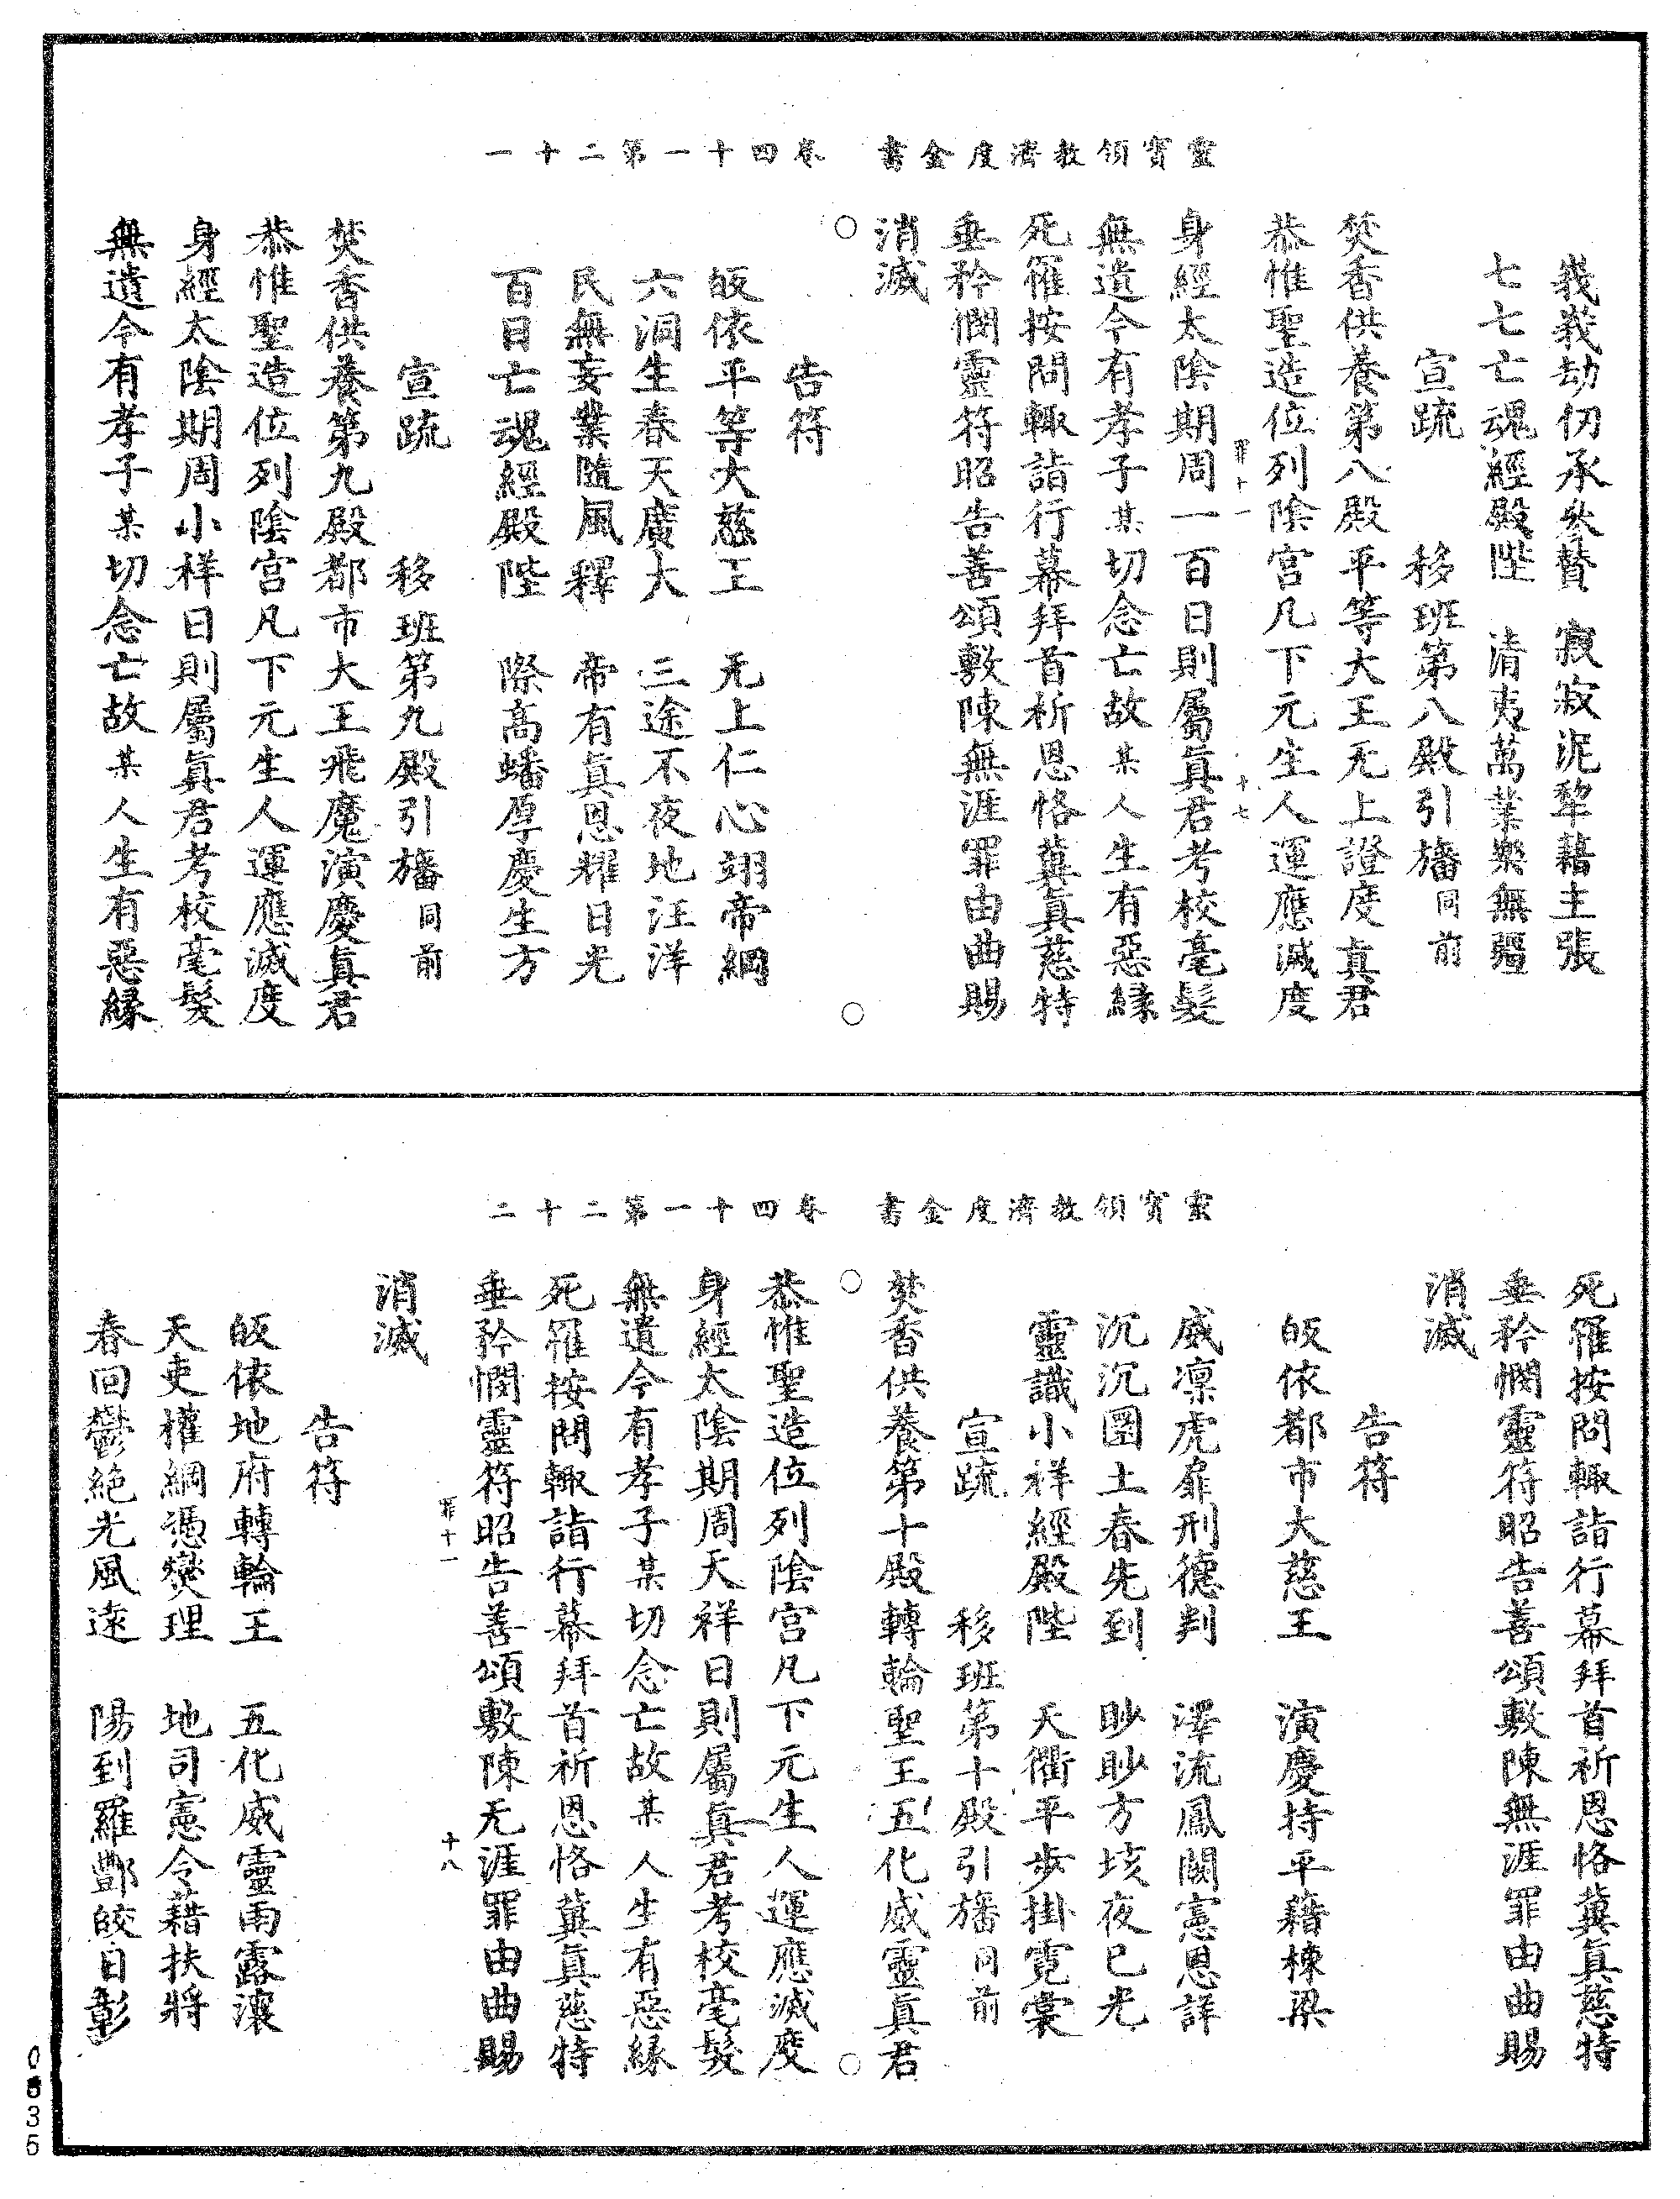 靈寶領教濟度金書　卷四十一第二十一
峩峩劫仞承叅贊　寂寂泥犂藉主張
七七亡魂經殿陛　清夷萬業樂無疆
宣䟽　移班第八殿引旛同前
焚香供養第八殿平等大王无上證度真君
恭惟聖造位列陰宫凡下元生人運應滅度
罪十一　十七
身經太陰期周一百日則屬眞君考校毫髮
無遺今有孝子某切念亡故某人生有惡縁
死罹按問輙詣行幕拜首祈恩恪冀眞慈特
垂矜憫靈符昭告善頌敷陳無涯罪由曲賜
消滅
告符
皈依平等大慈王　无上仁心翊帝綱
六洞生春天廣大　三途不夜地汪洋
民無妄業隨風釋　帝有眞恩耀日光
百日亡魂經殿陛　際高蟠厚慶生方
宣䟽　移班第九殿引旛同前
焚香供養第九殿都市大王飛魔演慶眞君
恭惟聖造位列陰宫凡下元生人運應滅度
身經太陰期周小祥日則屬眞君考校毫髮
無遺今有孝子某切念亡故某人生有惡縁
靈寶領教濟度金書　卷四十一第二十二
死罹按問輙詣行幕拜首祈恩恪冀眞慈特
垂矜憫靈符昭告善頌敷陳無涯罪由曲賜
消滅
告符
皈依都市大慈王　演慶持平藉棟梁
威凛虎扉刑德判　澤流鳳闕憲恩詳
沉沉圜土春先到　眇眇方垓夜已光
靈識小祥經殿陛　天衢平步掛霓裳
宣䟽　移班第十殿引旛同前
焚香供養第十殿轉輪聖王五化威靈眞君
恭惟聖造位列陰宫凡下元生人運應滅度
身經太陰期周天祥日則屬眞君考校毫髮
無遺今有孝子某切念亡故某人生有惡縁
死罹按問輙詣行幕拜首祈恩恪冀眞慈特
垂矜憫靈符昭告善頌敷陳无涯罪由曲賜
罪十一　十八
消滅
告符
皈依地府轉輪王　五化威靈雨露瀼
天吏權綱憑爕理　地司憲令藉扶將
春回鬱絕光風遠　陽到羅酆皎日彰
0835